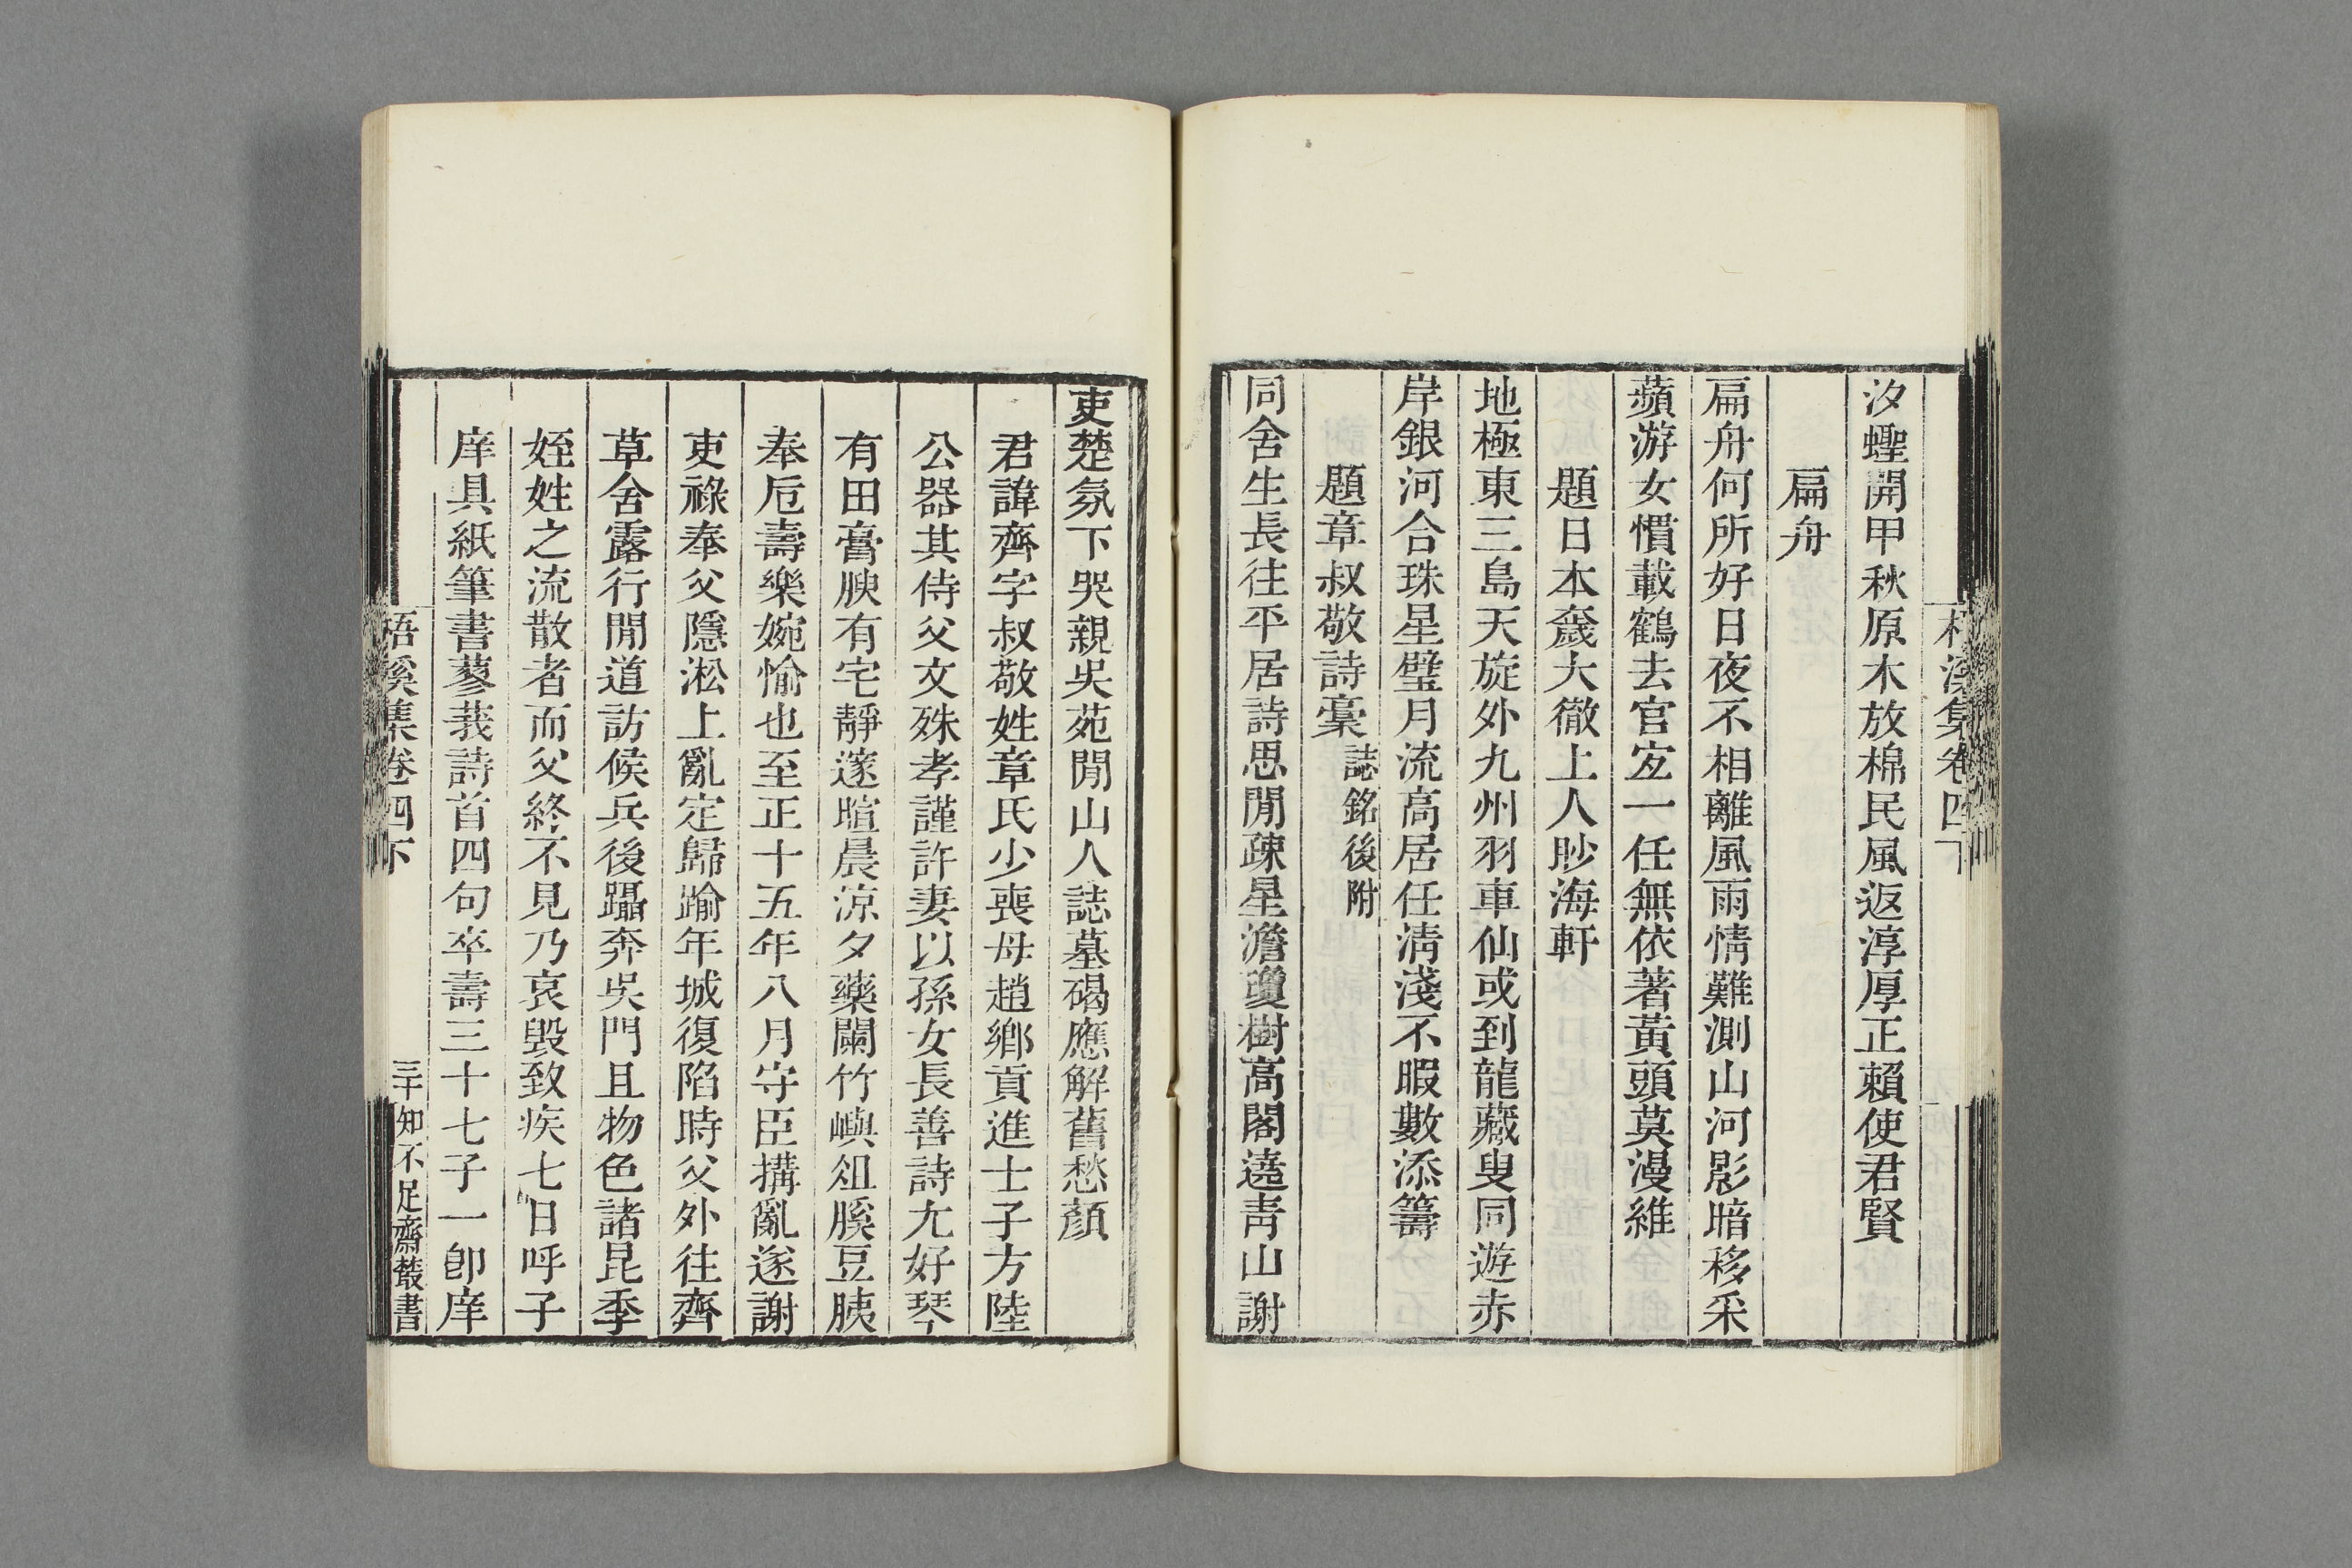 汐蟶開甲秋原木放棉民風返淳厚正賴使君賢
扁舟
扁舟何所好日夜不相離風雨情難測山河影暗移采
蘋游女慣載鶴去官宐一任無依著黃頭莫漫維
題日本龕大徹上人眇海軒
地極東三島天旋外九州羽車仙或到龍藏叟同遊赤
岸銀河合珠星璧月流高居任淸淺不暇數添籌
題章叔敬詩槀誌銘後附
同舍生長往平居詩思閒疎星澹瓊樹高閣遶靑山謝
吏楚氛下哭親吳苑閒山人誌墓碣應解舊愁顏
君諱齊字叔敬姓章氏少喪母趙鄉貢進士子方陸
公器其侍父文殊孝謹許妻以孫女長善詩尤好琴
有田膏腴有宅靜邃暄晨涼夕藥闌竹嶼俎膎豆胰
奉卮壽樂婉愉也至正十五年八月守臣搆亂遂謝
吏祿奉父隱淞上亂定歸踰年城復陷時父外往齊
草舍露行閒道訪候兵後躡奔吳門且物色諸昆季
姪姓之流散者而父終不見乃哀毀致疾七日呼子
庠具紙筆書蓼莪詩首四句卒壽三十七子一卽庠
梧溪集卷四下
三十
知不足齋叢書